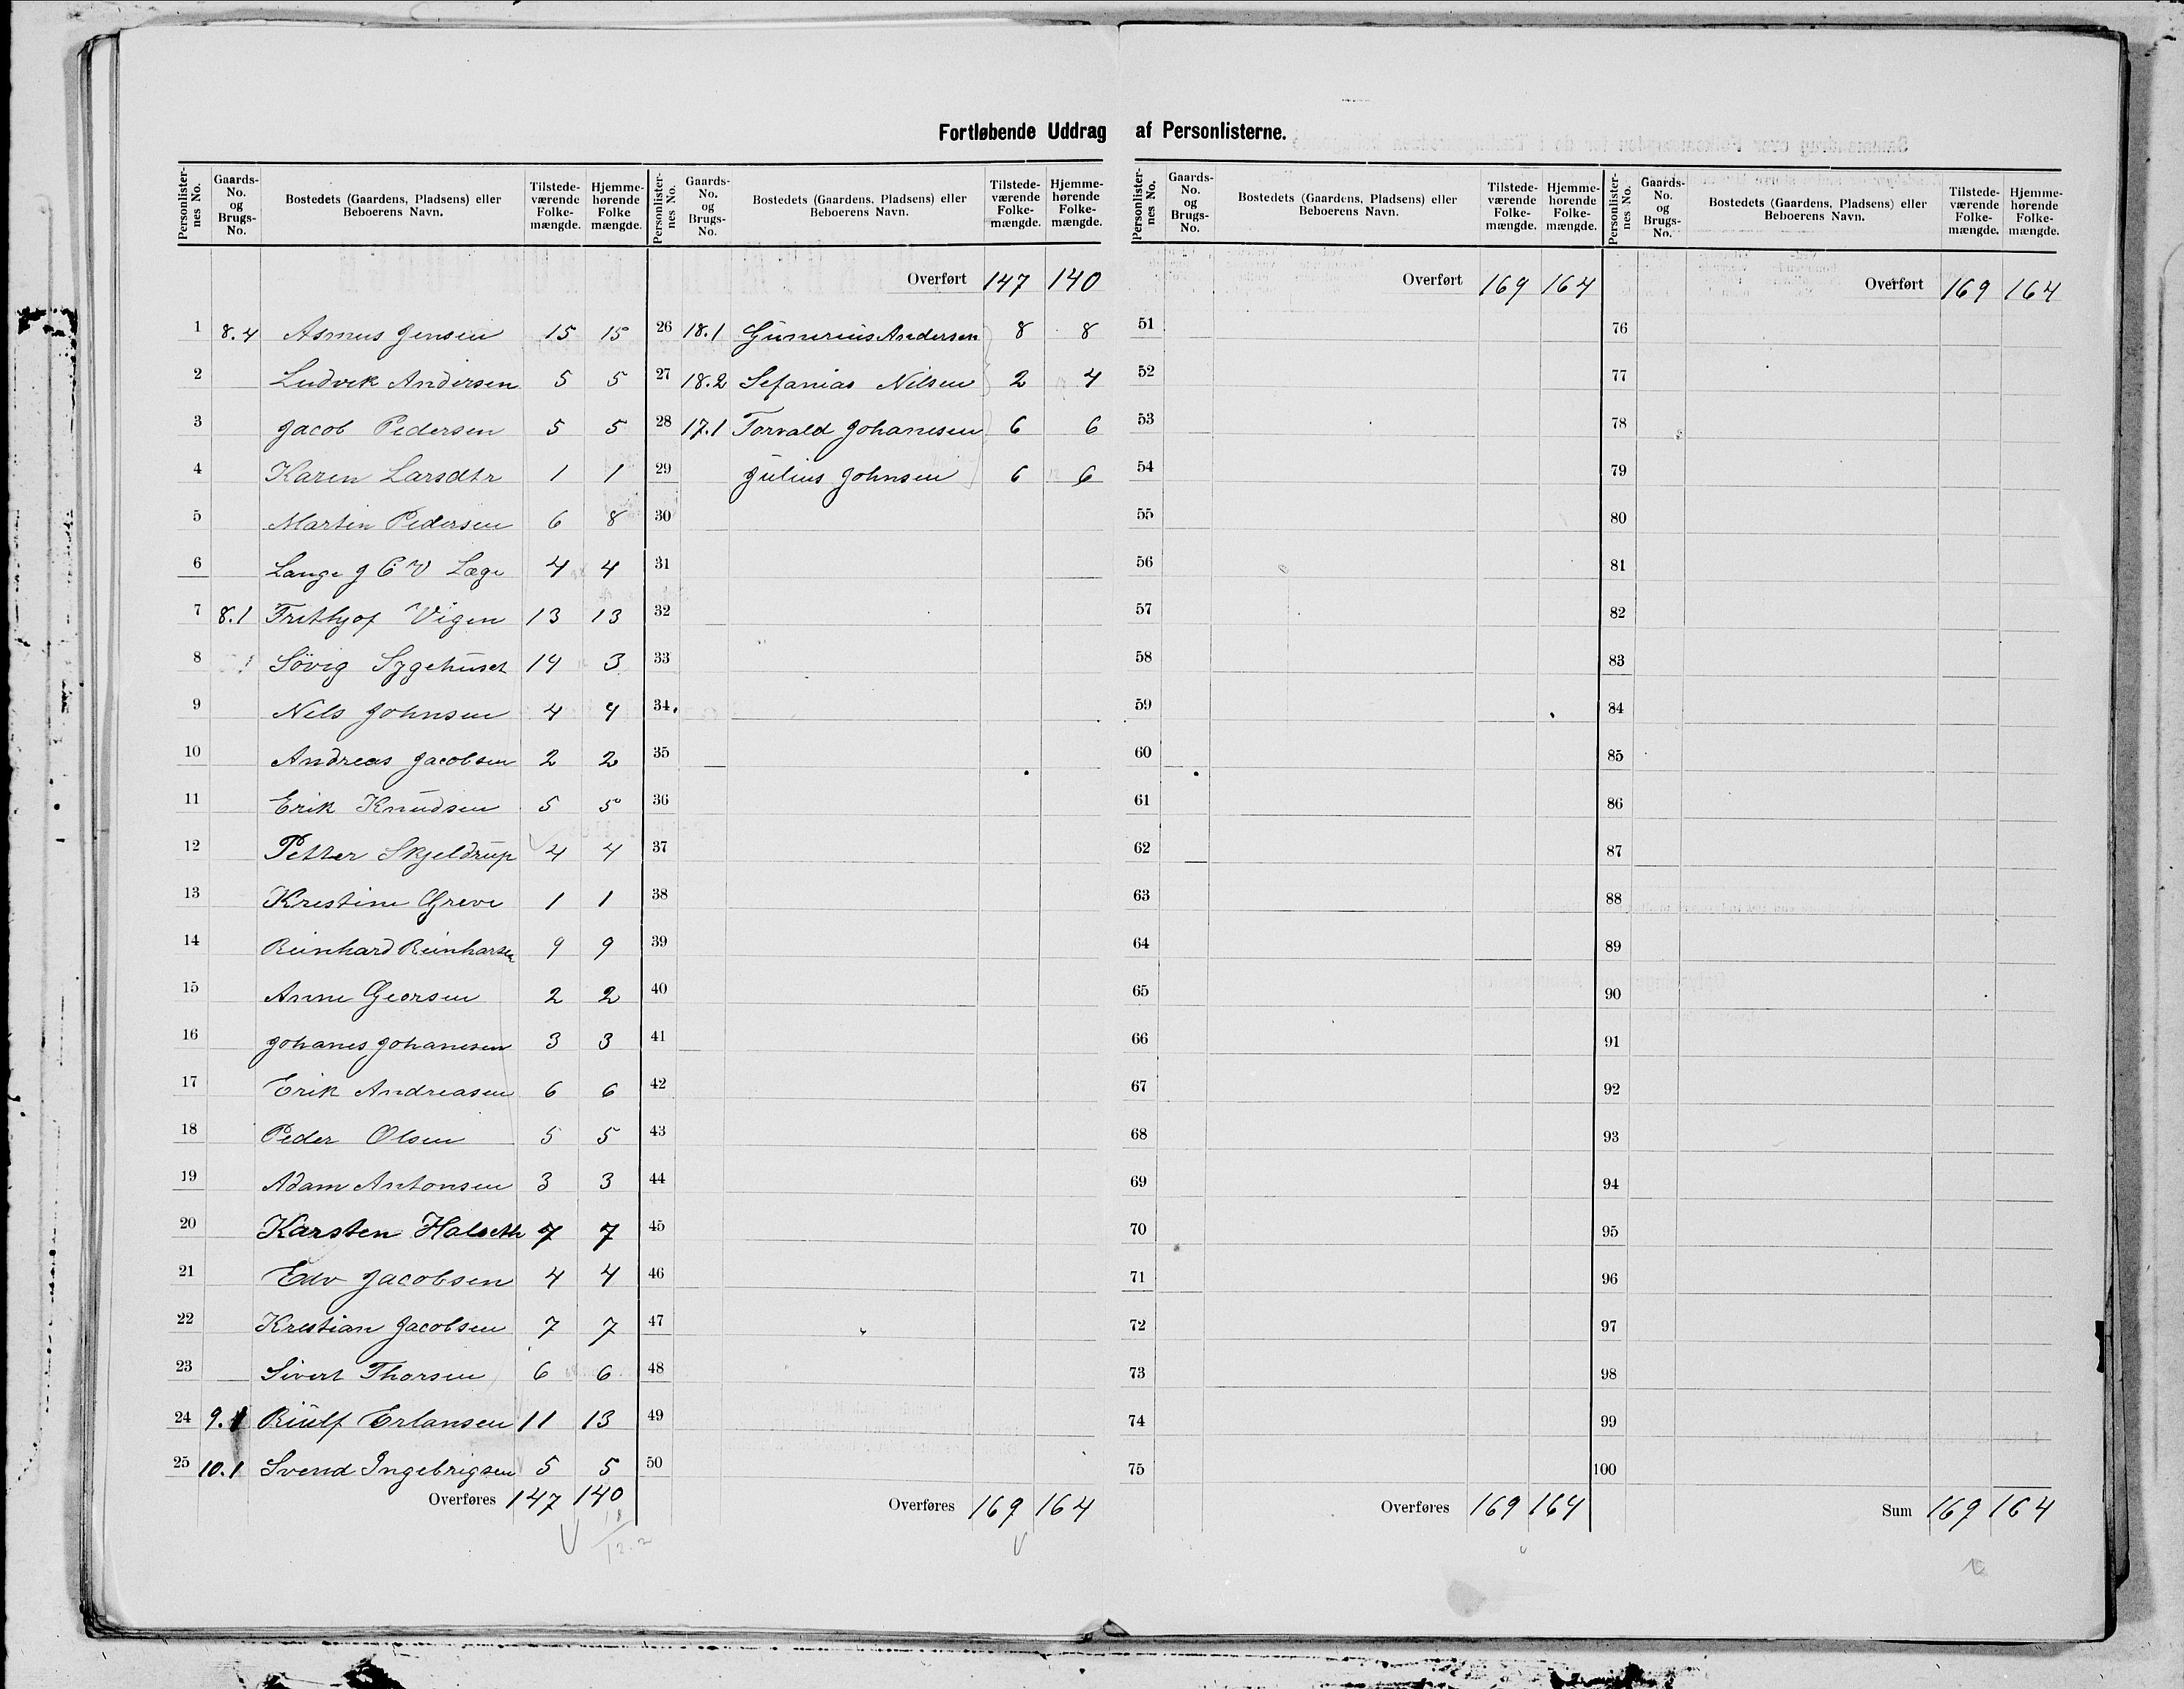 Fortløbende Uddrag af Personlisterne.
Personlister-nes No. Gaards-No. og Brugs-No. Bostedets (Gaardens, Pladsens) eller Beboerens Navn. Tilstede-værende Folke-mængde. Hjemme-hørende Folke mængde.
1 8.4 Asmus Jensen 15 15
2 Ludvik Andersen 5 5
3 Jacob Pedersen 5 5
4 Karen Larsdtr 1 1
5 Martin Pedersen 6 8
6 Lange J C V Læge 4 4
7 8.1 Frithjof Vigen 13 13
8 Søvig Sygehuset 14 3
9 Nils Johnsen 4 4
10 Andreas Jacobsen 2 2
11 Erik Knudsen 5 5
12 Petter Skjeldrup 4 4
13 Krestine Greve 1 1
14 Reinhard Reinharsen 9 9
15 Anne Georsen 2 2
16 Johanes Johanesen 3 3
17 Erik Andreasen 6 6
18 Peder Olsen 5 5
19 Adam Antonsen 3 3
20 Karsten Halseth 7 7
21 Edv Jacobsen 4 4
22 Krestian Jacobsen 7 7
23 Sivert Thorsen 6 6
24 9.1 Riulf Erlansen 11 13
25 10.1 Svend Ingebrigsen 5 5
Overføres 147 140
18
12.2
Personlister-nes No. Gaards-No. og Brugs-No. Bostedets (Gaardens, Pladsens) eller Beboerens Navn. Tilstede-værende Folke-mængde. Hjemme-hørende Folke-mængde.
Overført 147 140
26 18.1 Gunerius Andersen 8 8
27 18.2 Sefanias Nilsen 2 4
28 17.1 Torvald Johanesen 6 6
29 Julius Johnsen 6 6
30
31
32
33
34
35
36
37
38
39
40
41
42
43
44
45
46
47
48
49
50
Overføres 169 164
Personlister-nes No. Gaards-No. og Brugs-No. Bostedets (Gaardens, Pladsens) eller Beboerens Navn. Tilstede-værende Folke-mængde. Hjemme-hørende Folke-mængde.
Overført 169 164
51
52
53
54
55
56
57
58
59
60
61
62
63
64
65
66
67
68
69
70
71
72
73
74
75
Overføres 169 164
Personlister-nes No. Gaards-No. og Brugs-No. Bostedets (Gaardens, Pladsens) eller Beboerens Navn. Tilstede-værende Folke-mængde. Hjemme-hørende Folke-mængde.
Overført 169 164
76
77
78
79
80
81
82
83
84
85
86
87
88
89
90
91
92
93
94
95
96
97
98
99
100
Sum 169 164